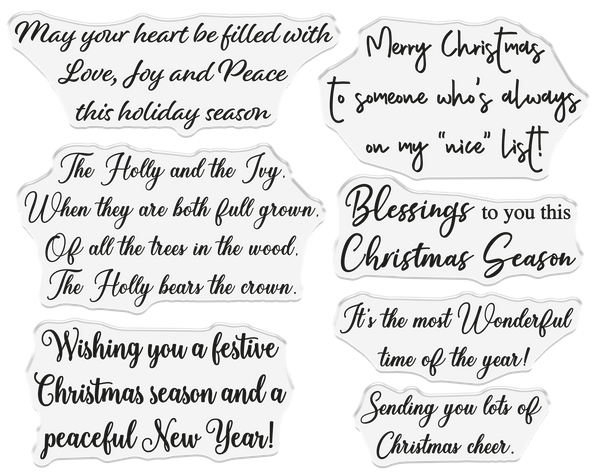 May your heart be filled with
Love, Joy and Peace
this holiday season
Merry Christmas
to someone who's always
on my "nice" list!
The Holly and the Ivy.
When they are both full grown.
Of all the trees in the wood.
The Holly bears the crown.
Blessings to you this
Christmas Season
Wishing you a festive
Christmas season and a
peaceful New Year!
It's the most Wonderful
time of the year!
Sending you lots of
Christmas cheer.